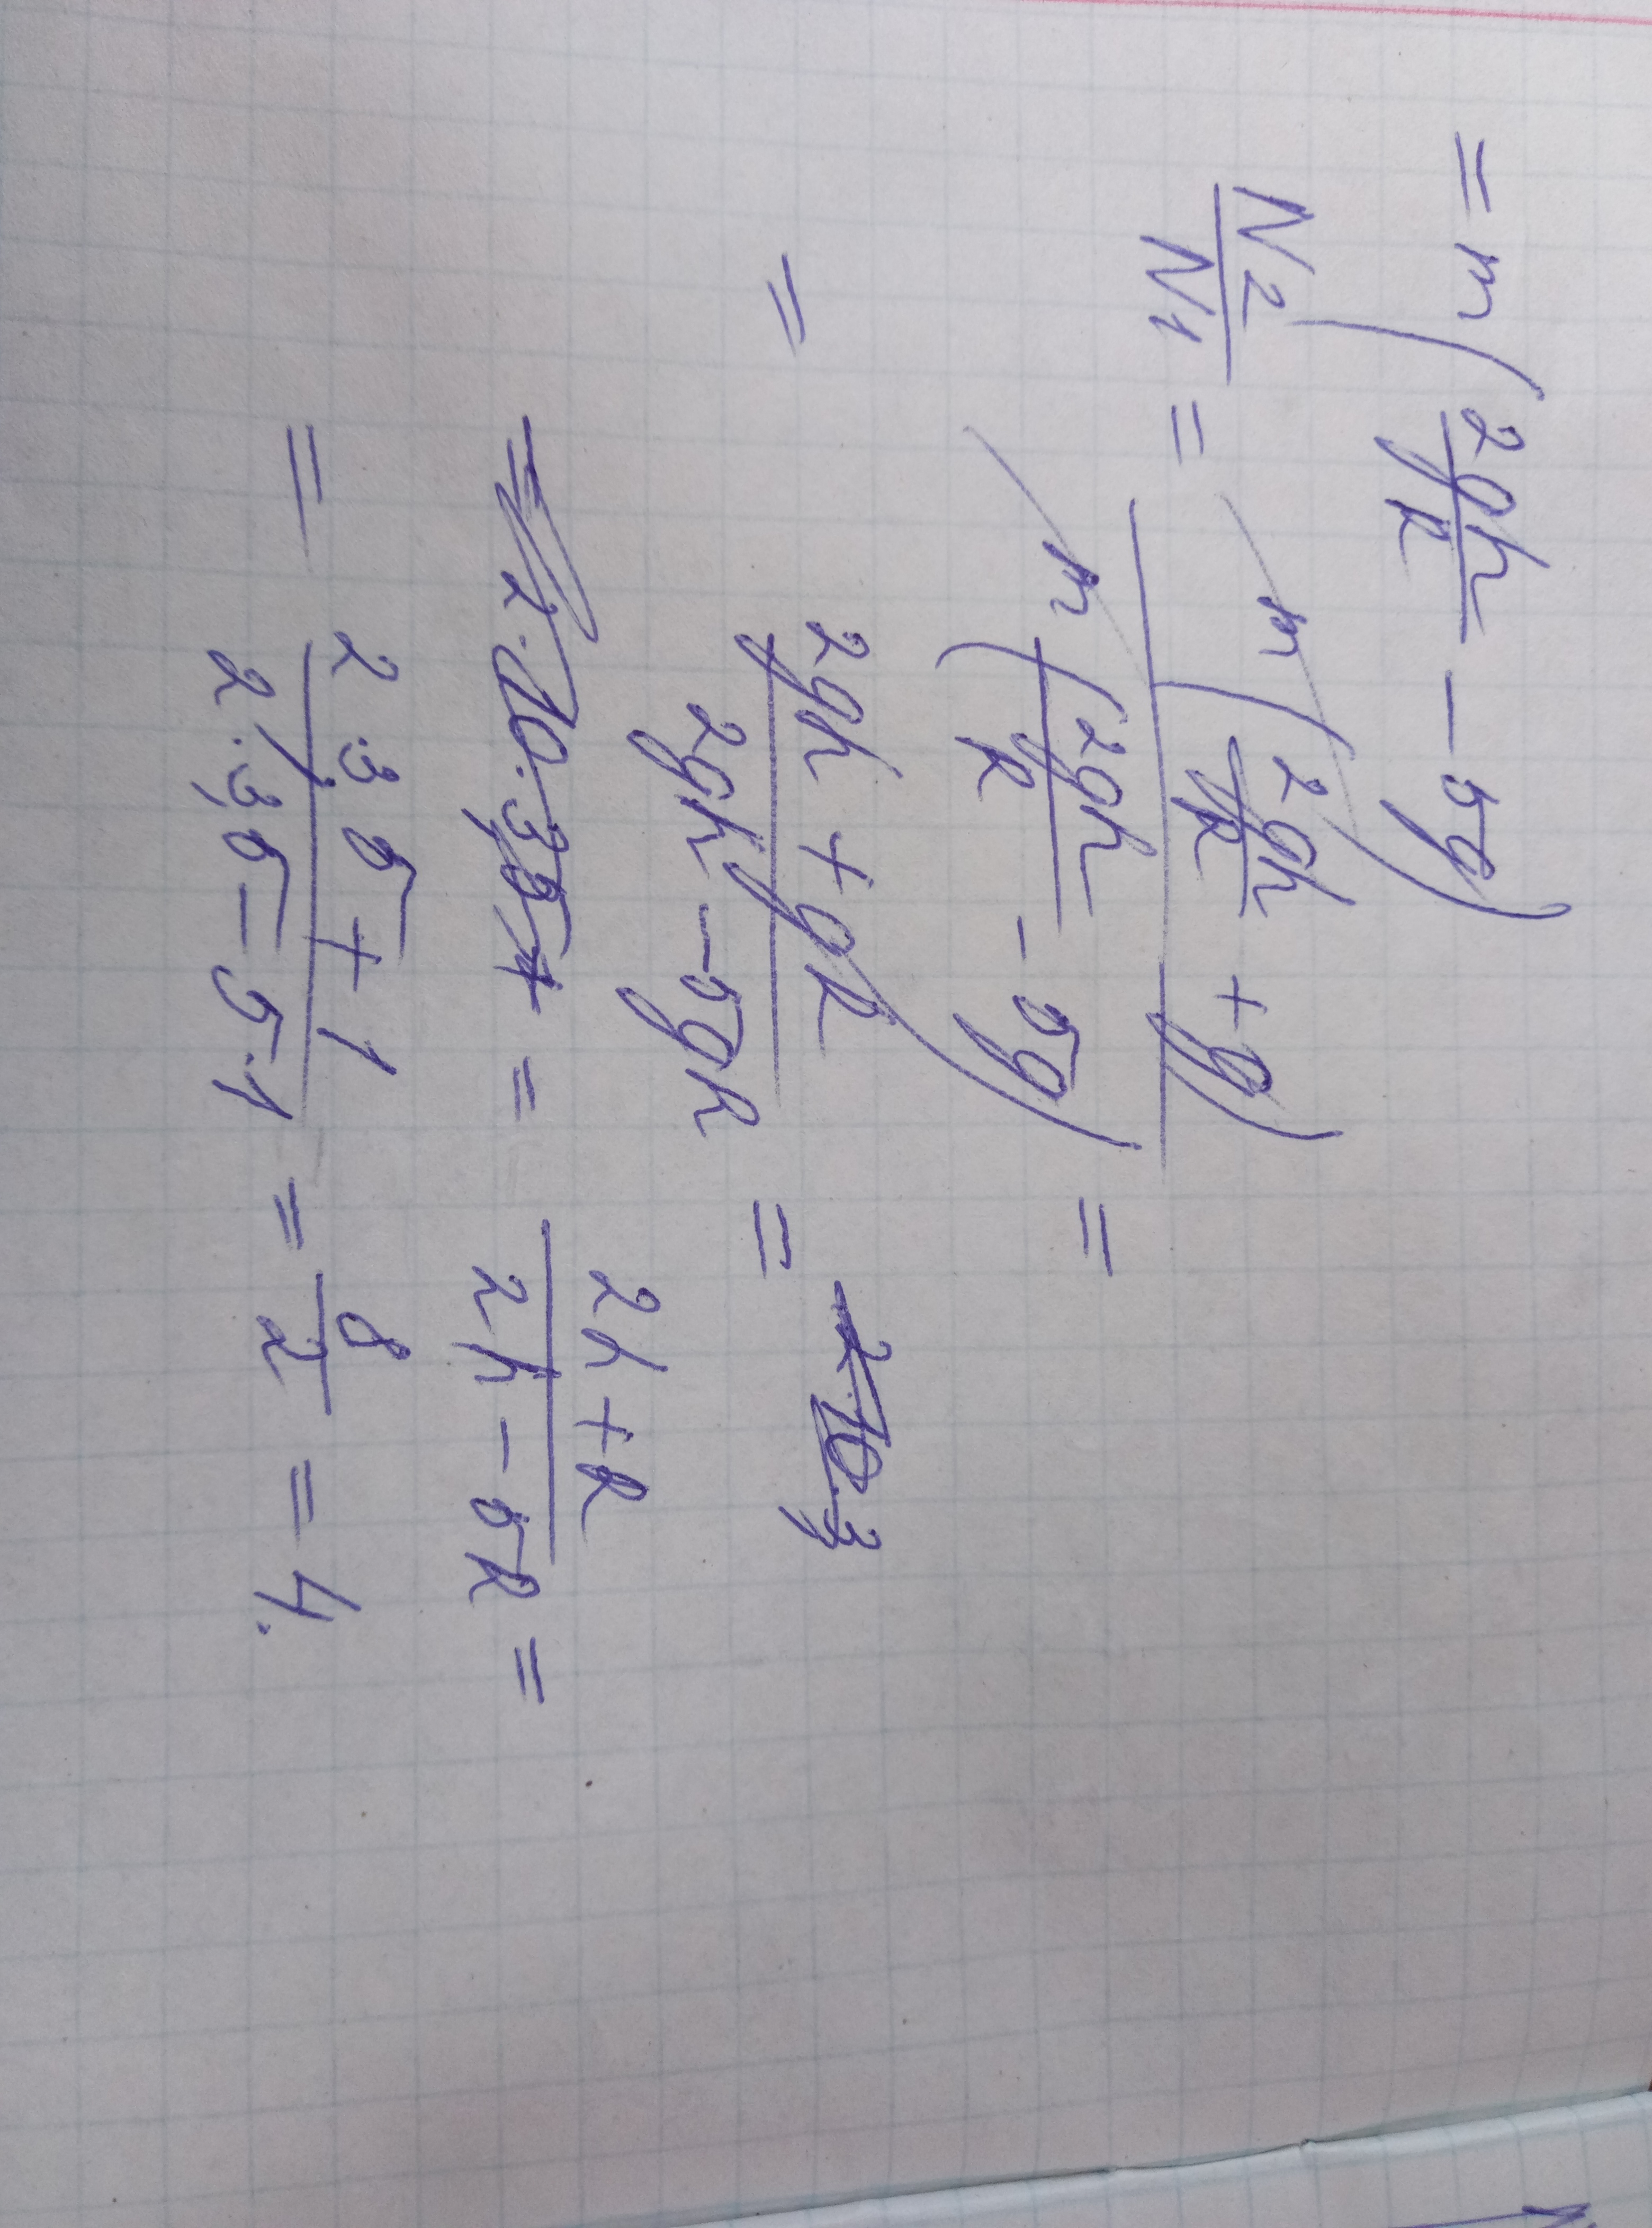 = m(2gh/R - 5g)
N2/N1 = m(2gh/R + g)/m(2gh/R - 5g) =
= 2gh + gR/2gh - 5gR = 2·10·3
2·10·3,5+ = 2h + R/2h - 5R =
= 2·3,5 + 1/2·3,5 - 5·1 = 8/2 = 4.